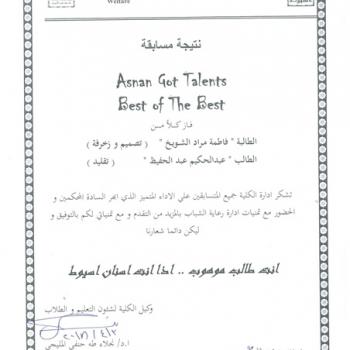 Welfare
نتيجة مسابقة
Asnan Got Talents
Best of The Best
فاز كلاً من
الطالبة " فاطمة مراد الشويخ " ( تصميم و زخرفة )
الطالب " عبدالحكيم عبد الحفيظ " ( تقليد )
تشكر ادارة الكلية جميع المتسابقين علي الاداء المتميز الذي ابهر السادة المحكمين و
الحضور مع تمنيات ادارة رعاية الشباب بالمزيد من التقدم و مع تمنياتي لكم بالتوفيق و
ليكن دائما شعارنا
انت طالب موهوب .. اذا انت اسنان اسيوط
وكيل الكلية لشئون التعليم و الطلاب
ا.د/ نجلاء طه حنفي المليجى